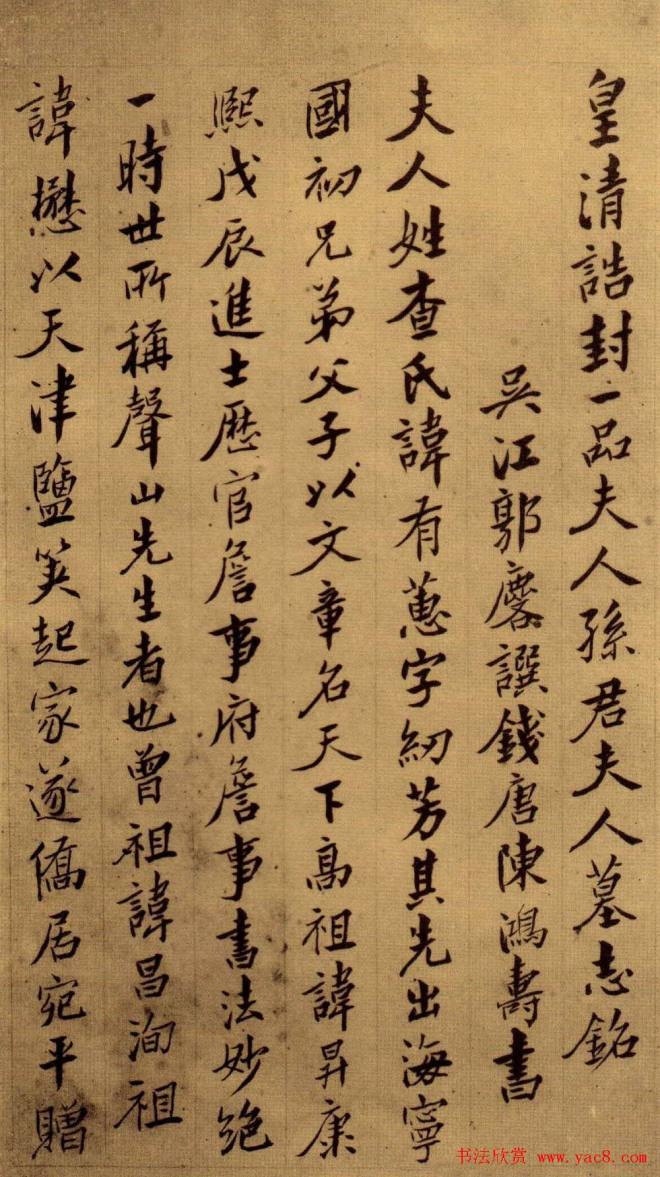 皇清誥封一品夫人孫君夫人墓志銘
吳江郭麐譔錢唐陳鴻壽書
夫人姓查氏諱有蕙字紉芳其先出海寧
國初兄弟父子以文章名天下高祖諱昇康
熙戊辰進士歷官詹事府詹事書法妙絕
一時世所稱聲山先生者也曾祖諱昌洵祖
諱懋以天津鹽筴起家遂僑居宛平贈
书法欣赏 www.yac8.com